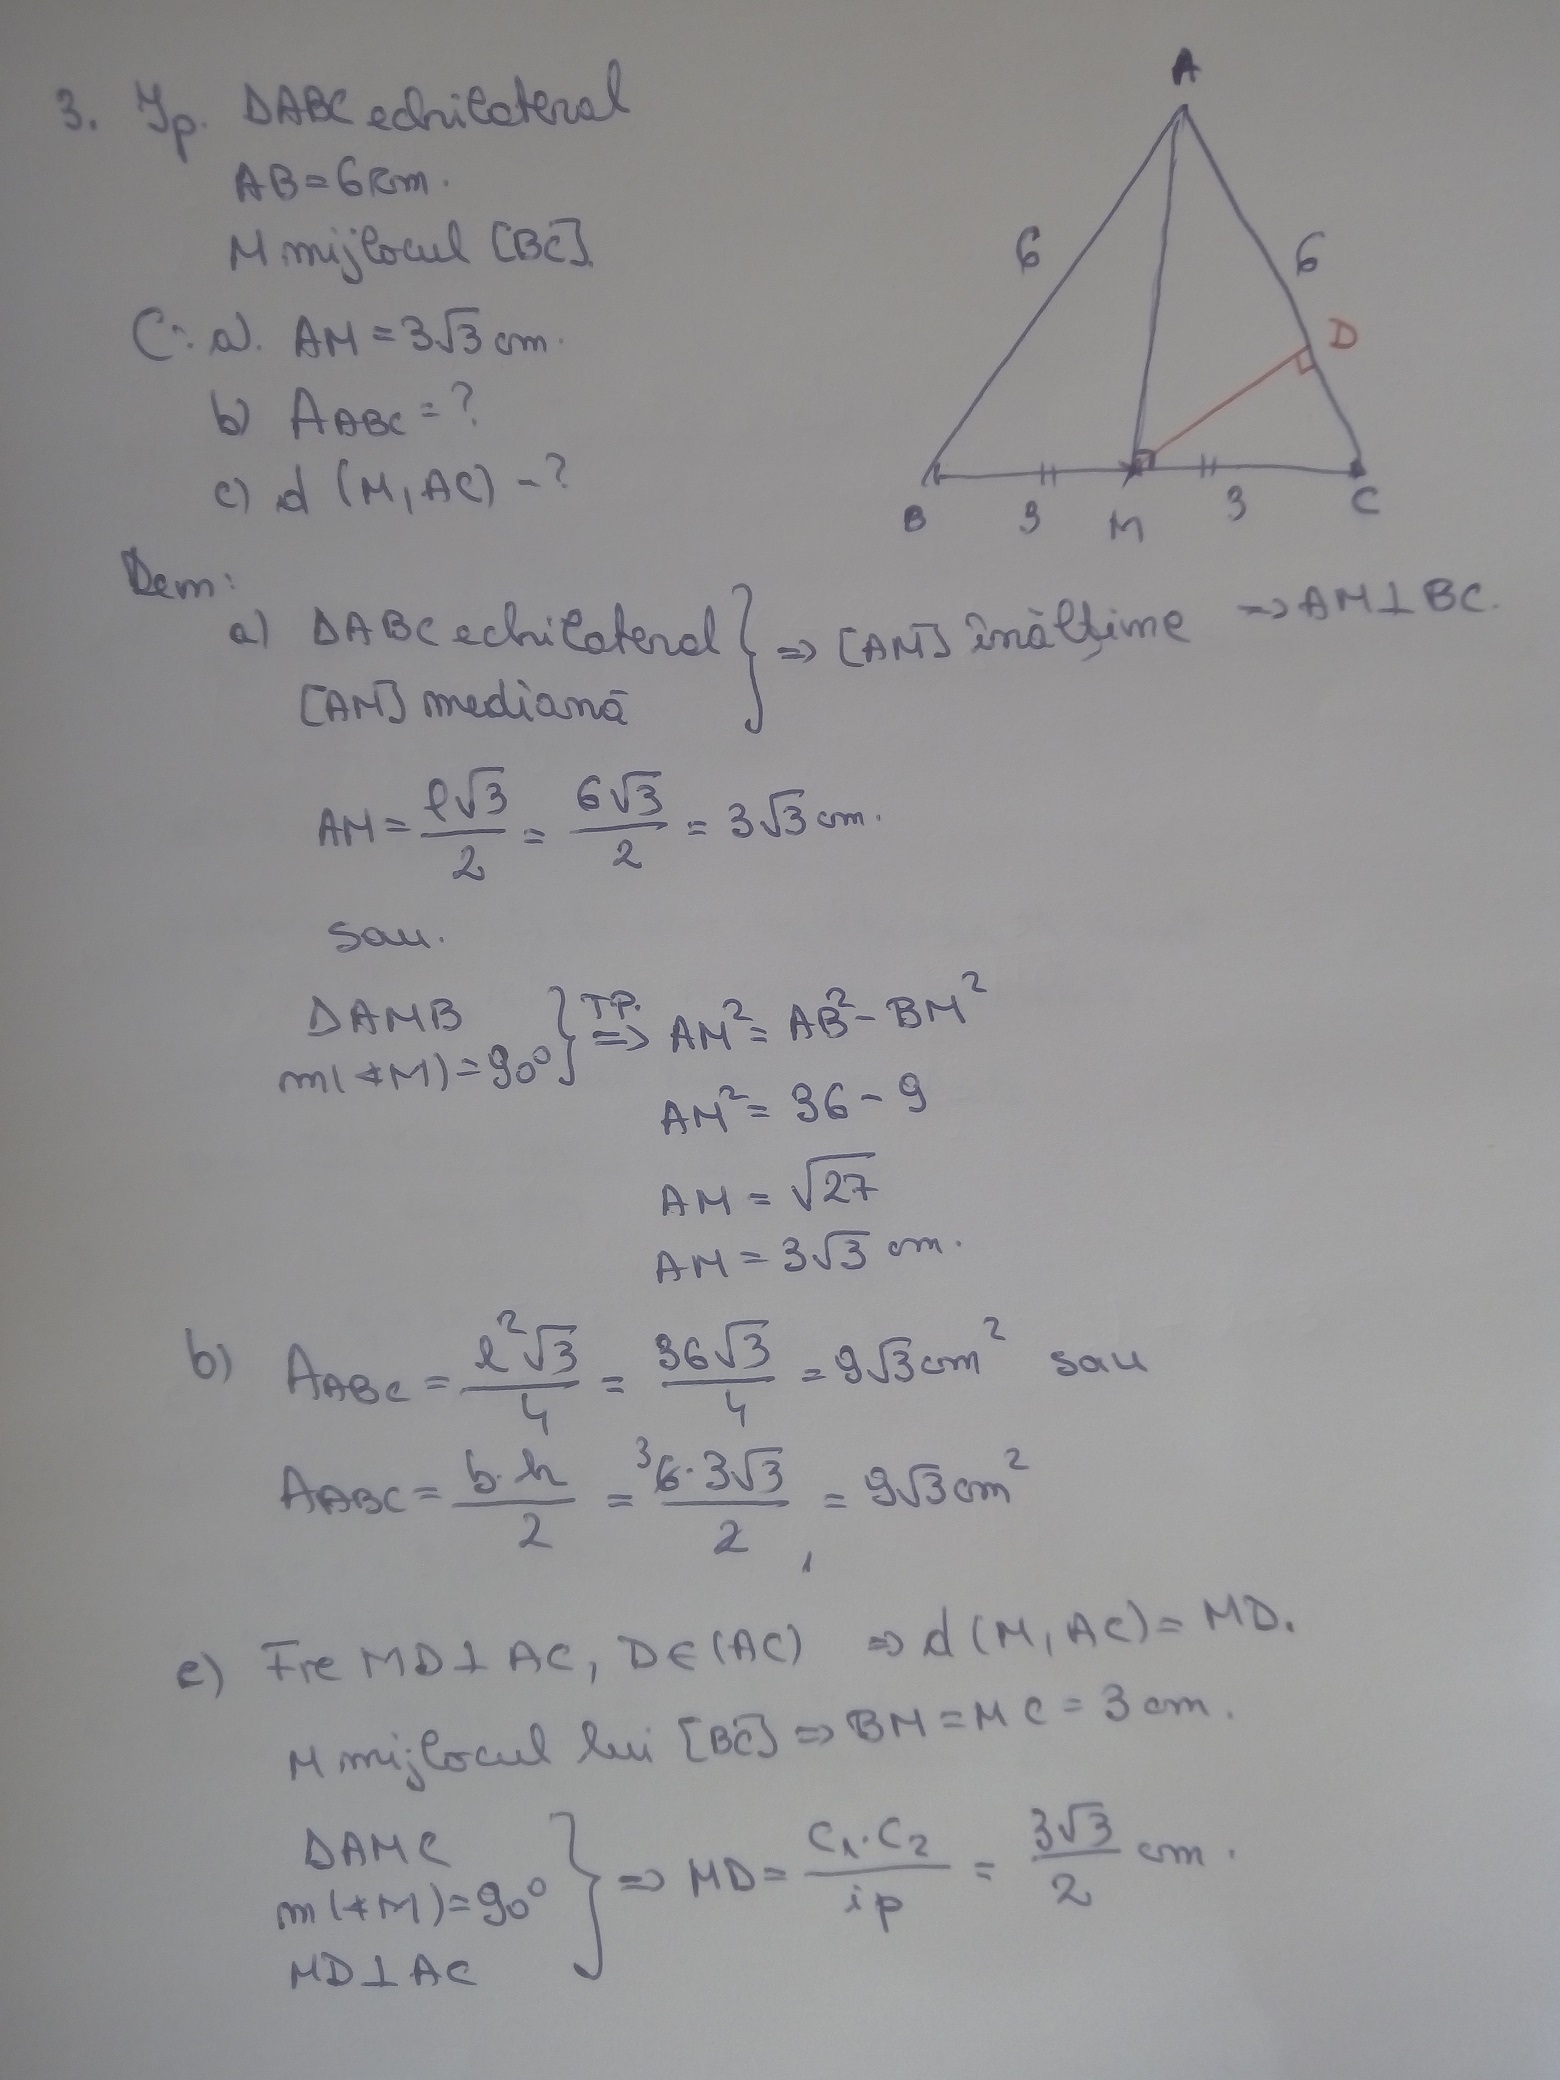 3. Ip. ΔABC echilateral
AB=6cm.
M mijlocul [BC].
C: a). AM = 3√3 cm.
b) A ABC = ?
c) d (M, AC) - ?
A
6
6
D
B
3
M
3
C
Dem:
a) ΔABC echilateral } => [AM] înălțime => AM⊥BC.
[AM] mediană
AM = l√3/2 = 6√3/2 = 3√3 cm.
sau.
ΔAMB } T.P. => AM² = AB² - BM²
m(∢M)=90°
AM² = 36 - 9
AM = √27
AM = 3√3 cm.
b) A ABC = l²√3/4 = 36√3/4 = 9√3 cm² sau
A ABC = b·h/2 = ³6·3√3/2 ₁ = 9√3 cm²
c) Fie MD⊥AC, D∈(AC) => d (M, AC) = MD.
M mijlocul lui [BC] => BM = MC = 3 cm.
ΔAMC
m(∢M)=90° } => MD = C₁·C₂/ip = 3√3/2 cm.
MD⊥AC